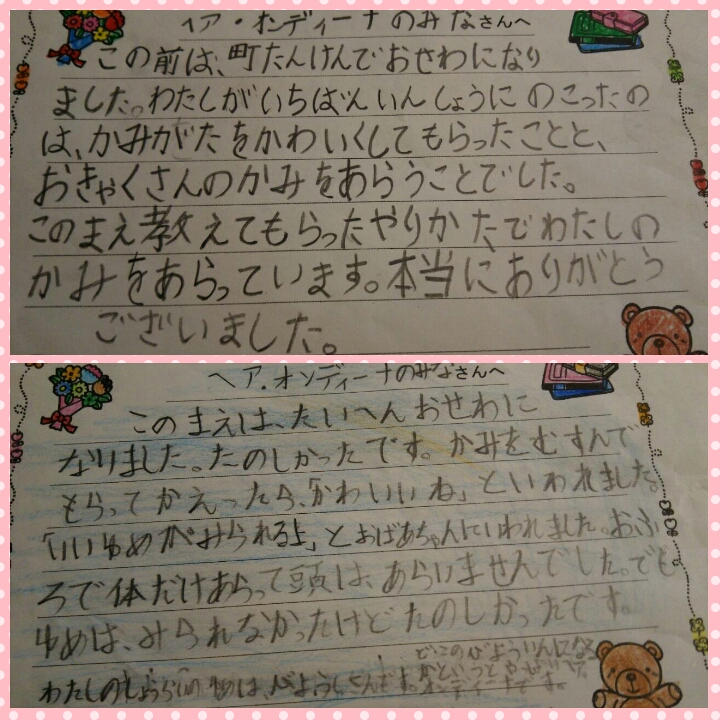 ヘア・オンディーナのみなさんへ
この前は、町たんけんでおせわになり
ました。わたしがいちばんいんしょうにのこったの
は、かみがたをかわいくしてもらったことと、
おきゃくさんのかみをあらうことでした。
このまえ教えてもらったやりかたでわたしの
かみをあらっています。本当にありがとう
ございました。
ヘア.オンディーナのみなさんへ
このまえは、たいへんおせわに
なりました。たのしかったです。かみをむすんで
もらってかえったら、「かわいいね」といわれました。
「いいゆめがみられるよ」とおばあちゃんにいわれました。おふ
ろで体だけあらって頭は、あらいませんでした。でも
ゆめは、みられなかったけどたのしかったです。
どこのびよういんになる
かというと
わたしのしょうらいのゆめは、びようしさんです。オンディーナです。